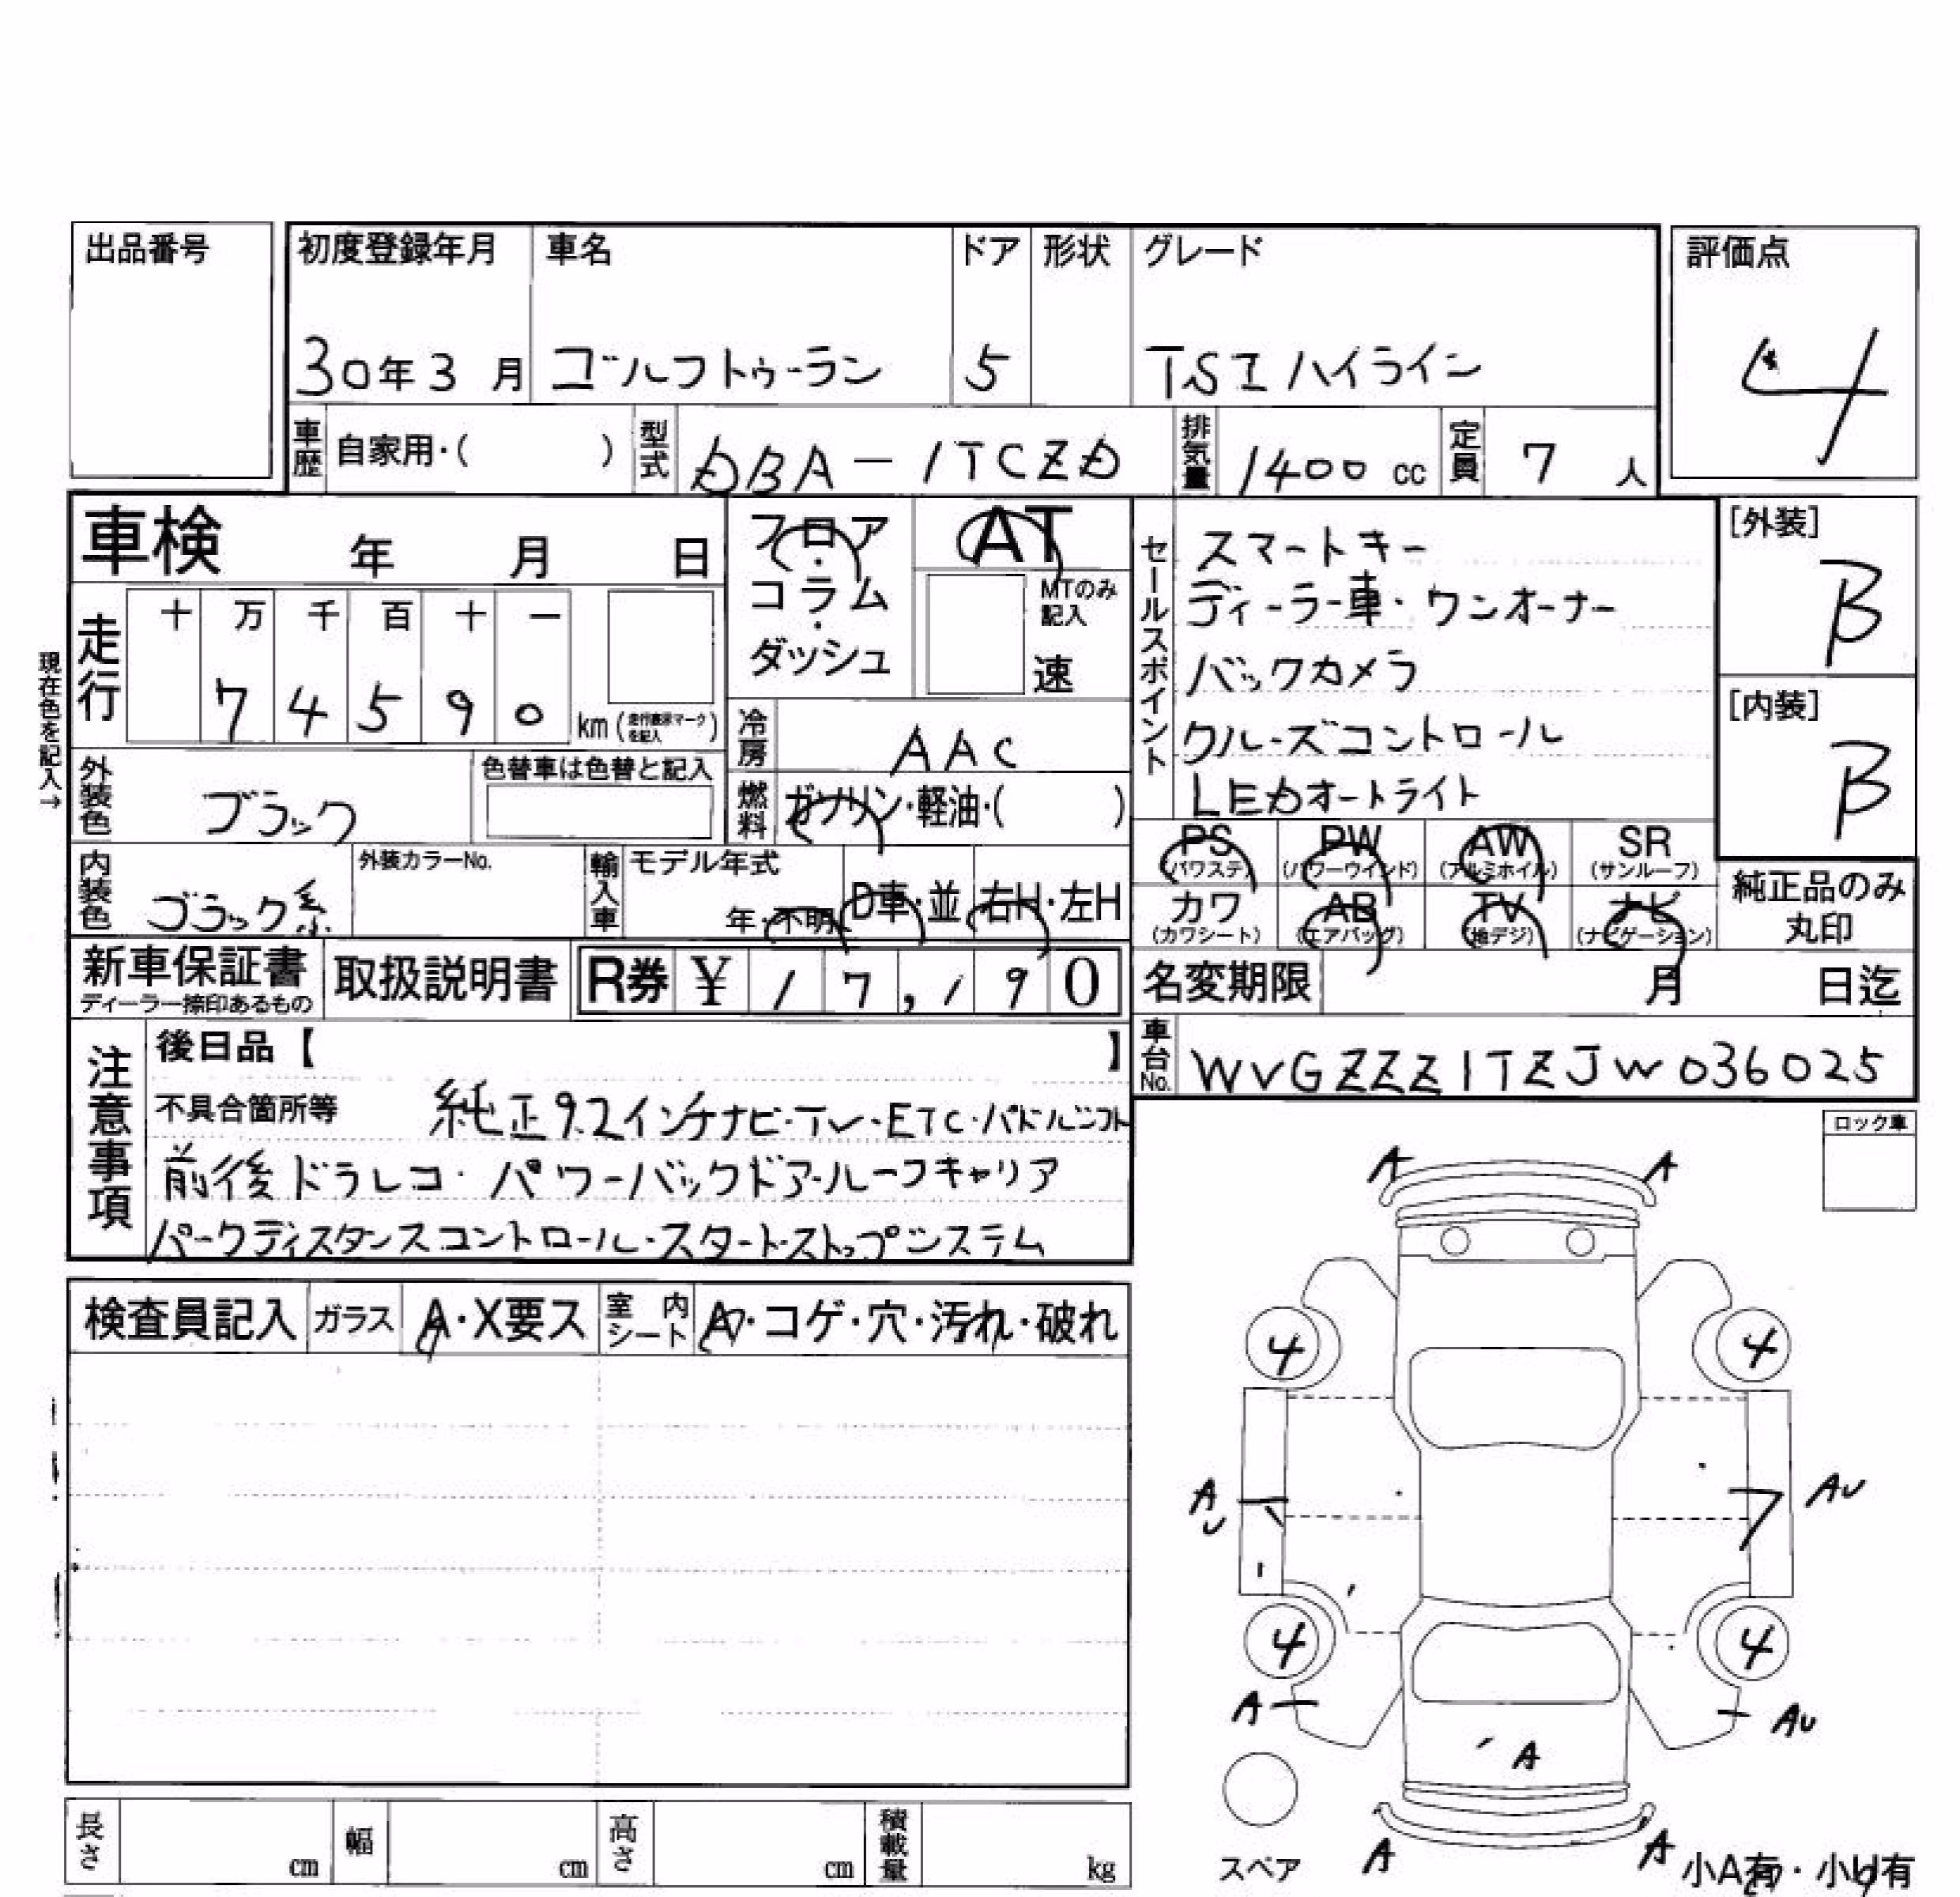 出品番号
初度登録年月 車名 ドア 形状 グレード
評価点
30年3月 ゴルフトゥーラン 5 TSIハイライン
4
車歴 自家用・( ) 型式 DBA-1TCZD 排気量 1400 cc 定員 7 人
車検 年 月 日
フロア・コラム・ダッシュ
AT
MTのみ記入
速
現在色を記入→
走行 十 万 千 百 十 一
7 4 5 9 0 km (走行表示マークを記入)
冷房 AAC
外装色 ブラック 色替車は色替と記入
燃料 ガソリン・軽油・( )
内装色 ブラック系 外装カラーNo. 輸入車 モデル年式 年・不明 D車・並 右H・左H
セールスポイント
スマートキー
ディーラー車・ワンオーナー
バックカメラ
クルーズコントロール
LEDオートライト
[外装]
B
[内装]
B
PS(パワステ) PW(パワーウインド) AW(アルミホイル) SR(サンルーフ)
カワ(カワシート) AB(エアバッグ) TV(地デジ) ナビ(ナビゲーション)
純正品のみ
丸印
新車保証書 ディーラー捺印あるもの 取扱説明書 R券 ¥ 17,190
名変期限 月 日迄
車台No. WVGZZZ1TZJW036025
注意事項
後日品【 】
不具合箇所等 純正9.2インチナビ・TV・ETC・パドルシフト
前後ドラレコ・パワーバックドア・ルーフキャリア
パークディスタンスコントロール・スタートストップシステム
ロック車
検査員記入 ガラス A・X要ス 室内シート A・コゲ・穴・汚れ・破れ
A A
4 4
AU AU
4 4
A AU
A
A A
スペア
小A有・小U有
長さ cm 幅 cm 高さ cm 積載量 kg